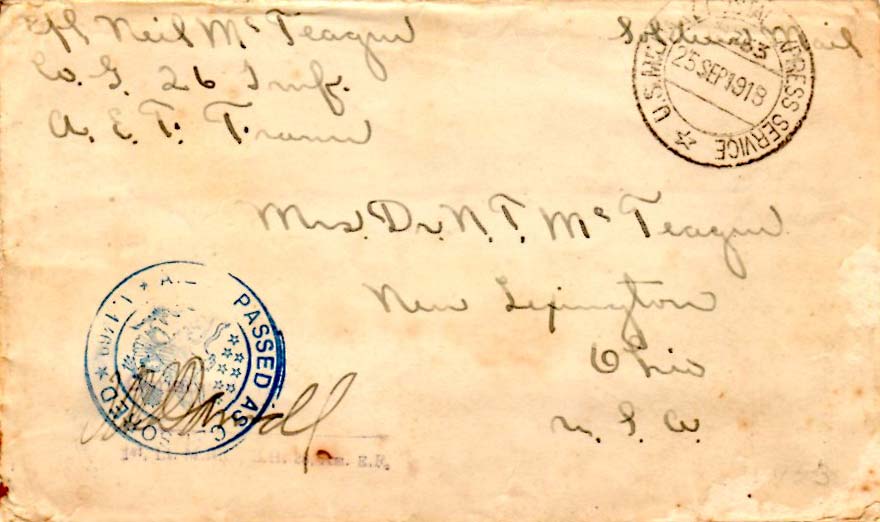 Cpl Neil McTeague
Co. G. 26 Inf.
A. E. F. France
Soldiers Mail
U.S. MIL. EXPRESS SERVICE
25 SEP 1918
Mrs. Dr. N. T. McTeague
New Lexington
Ohio
U. S. A.
PASSED AS CENSORED
1st Lt. E.F.